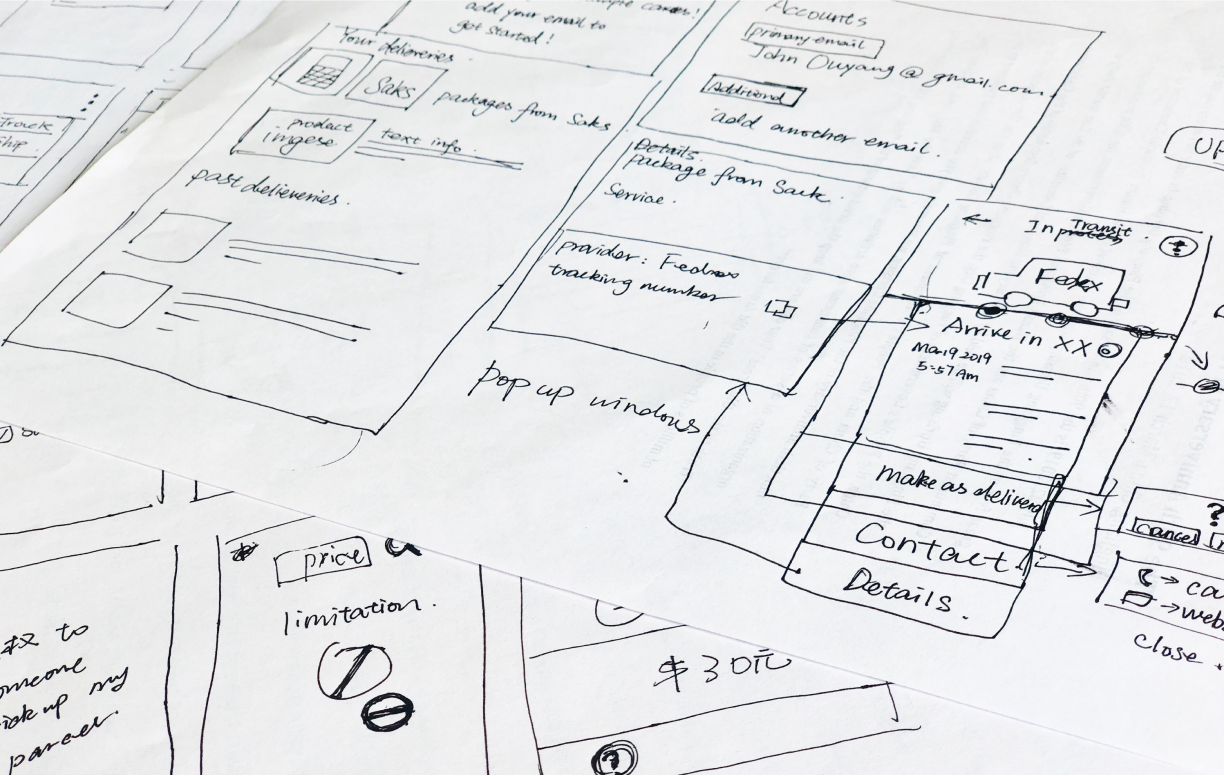 add your email to
get started!
Your delieveries.
Saks
packages from Saks
product
imgese
text info.
past delieveries.
Accounts
primary email
John Ouyang@gmail.com.
Additional
add another email.
Details.
package from Sack.
Service.
provider: Fedrex
tracking number
Pop up windows
In Transit.
Fedex
Arrive in XX
Mar.19 2019
5:57 Am
make as deliverd
Contact.
Details.
?
cancel
→ ca
→ web
close.
UP
Track
hip
price
limitation.
$30元
?
权 to
omeone
ick up my
parcel.